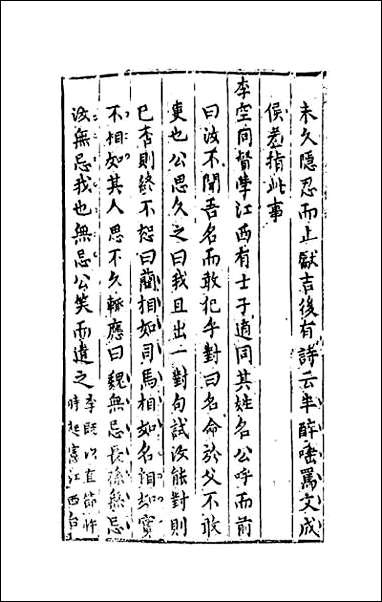 未久隱忍而止獻吉後有詩云半醉唾罵文成
侯蓋指此事
李空同督學江西有士子適同其姓名公呼而前
曰汝不聞吾名而敢犯乎對曰名命於父不敢
更也公思久之曰我且出一對句試汝能對則
已否則終不恕曰藺相如司馬相如名相如實
不相如其人思不久輒應曰魏無忌長孫無忌
汝無忌我也無忌公笑而遣之李既以直節忤
時起憲江西